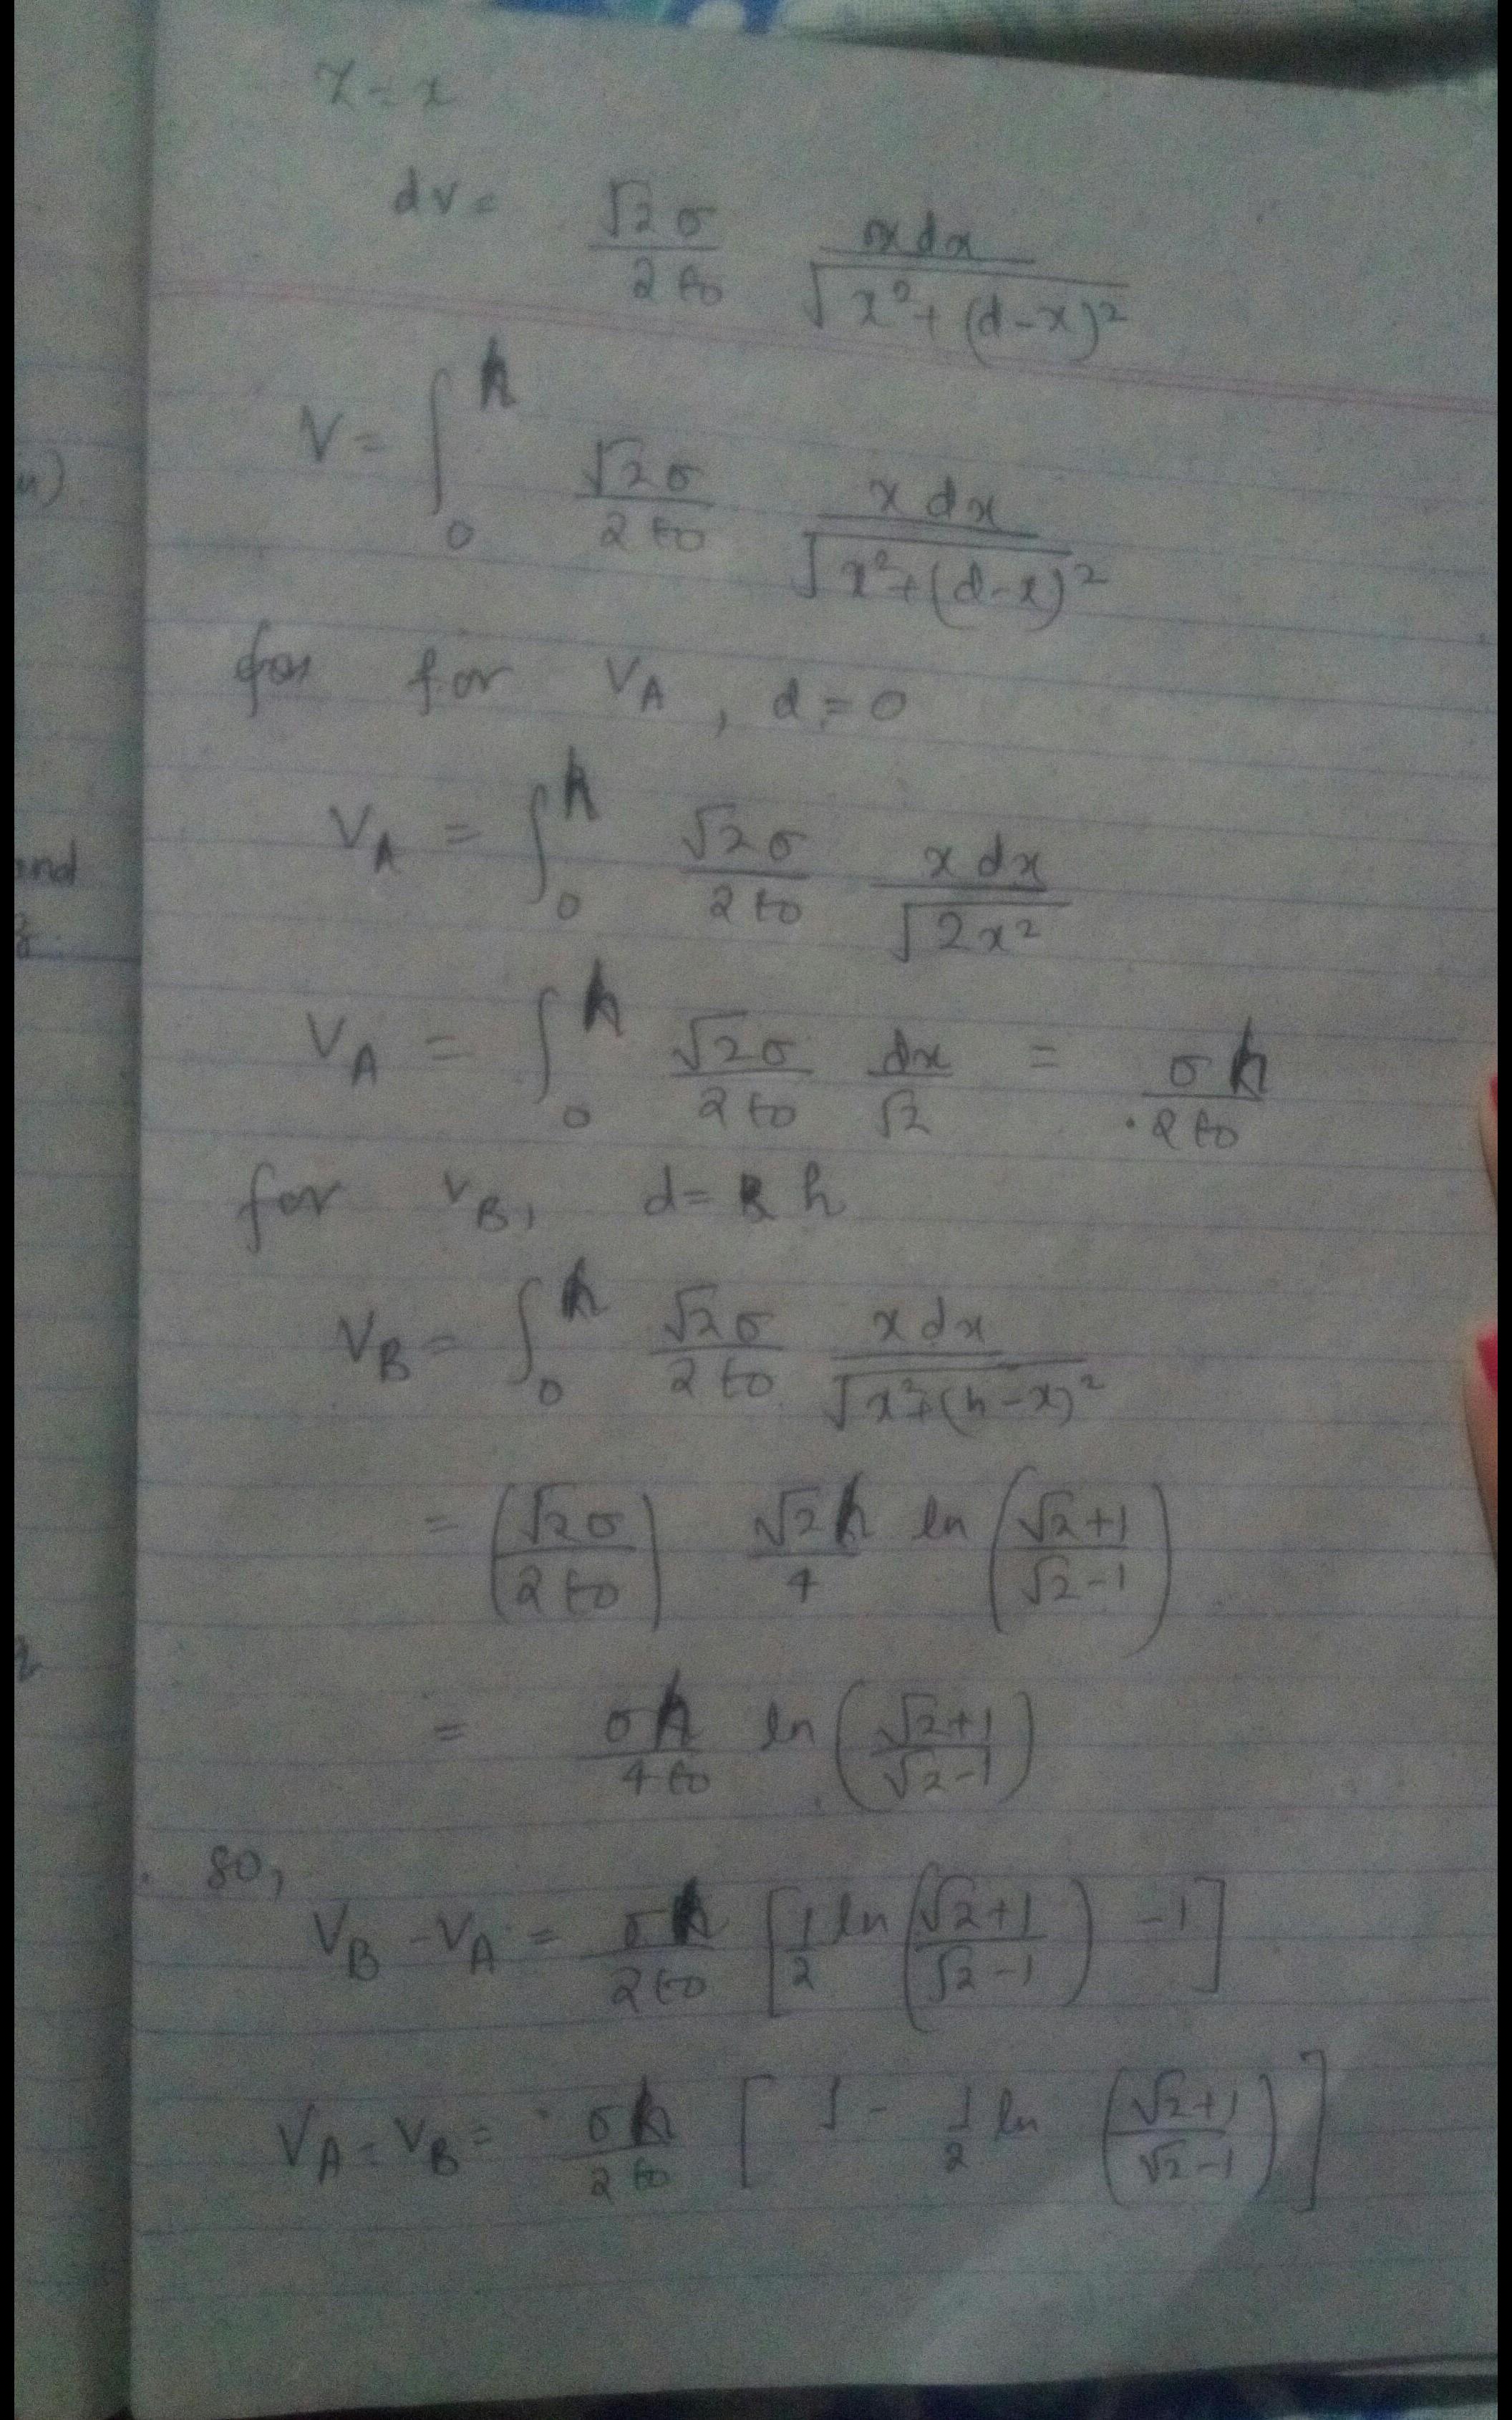 r = x
dv = √2 σ / 2 ϵ0 x dx / √(x² + (d-x)²)
V = ∫₀ʰ √2 σ / 2 ϵ0 x dx / √(x² + (d-x)²)
for for V_A , d = 0
V_A = ∫₀ʰ √2 σ / 2 ϵ0 x dx / √(2x²)
V_A = ∫₀ʰ √2 σ / 2 ϵ0 dx / √2 = σ h / 2 ϵ0
for V_B, d = h
V_B = ∫₀ʰ √2 σ / 2 ϵ0 x dx / √(x² + (h-x)²)
= (√2 σ / 2 ϵ0) √2 h / 4 ln (√2+1 / √2-1)
= σ h / 4 ϵ0 ln (√2+1 / √2-1)
so,
V_B - V_A = σ h / 2 ϵ0 [1/2 ln (√2+1 / √2-1) - 1]
V_A - V_B = σ h / 2 ϵ0 [1 - 1/2 ln (√2+1 / √2-1)]